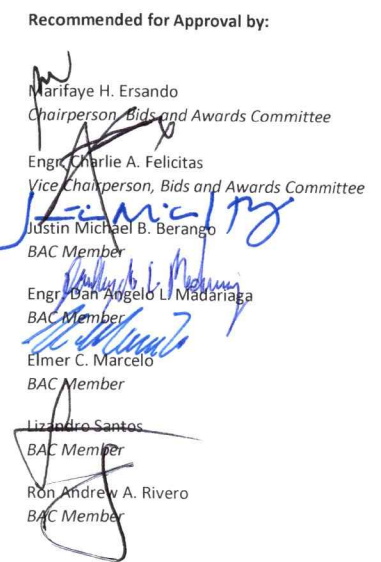 Recommended for Approval by:
Marifaye H. Ersando
Chairperson, Bids and Awards Committee
Engr. Charlie A. Felicitas
Vice Chairperson, Bids and Awards Committee
Justin Michael B. Berango
BAC Member
Engr. Dan Angelo L. Madariaga
BAC Member
Elmer C. Marcelo
BAC Member
Lizandro Santos
BAC Member
Ron Andrew A. Rivero
BAC Member